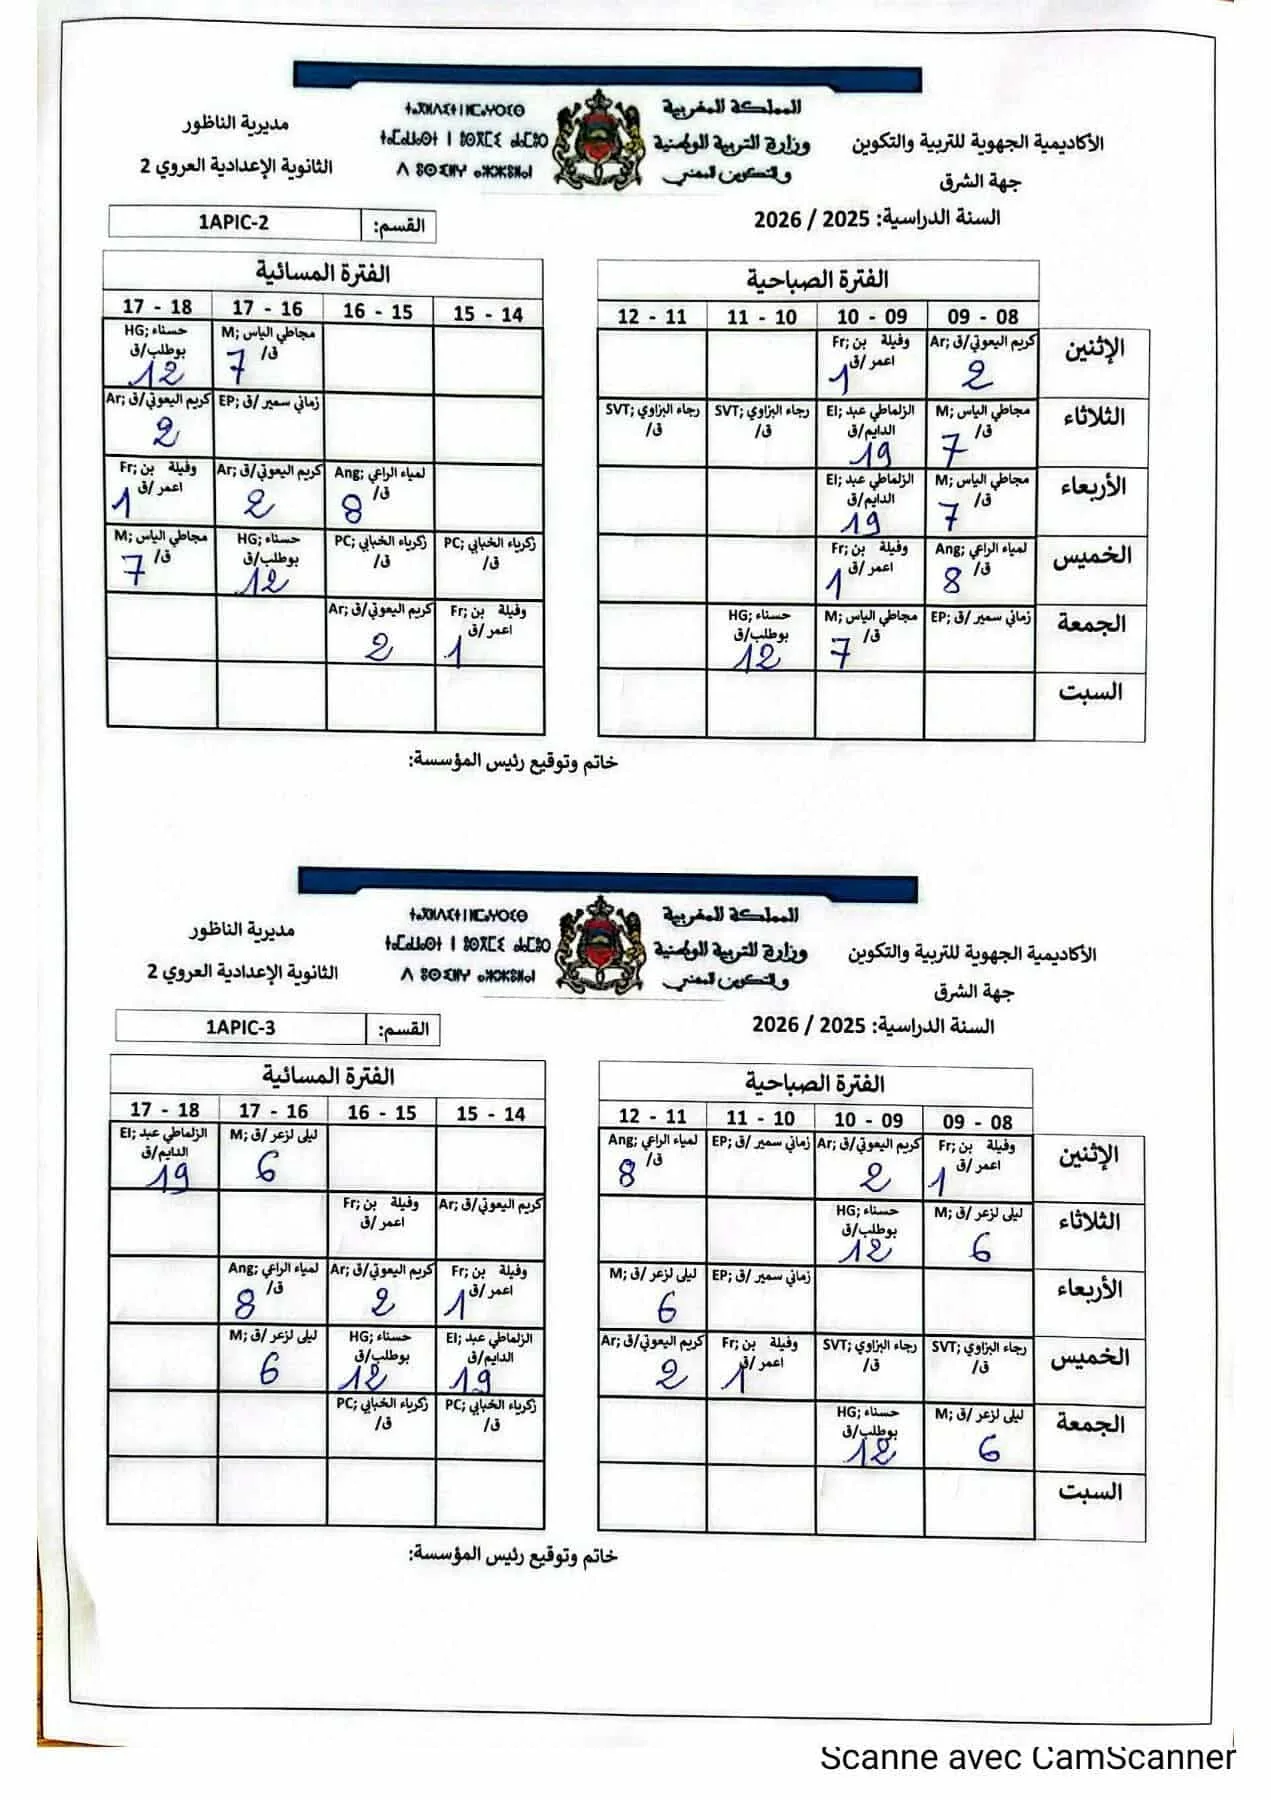 المملكة المغربية
وزارة التربية الوطنية
والتكوين المهني
ⵜⴰⴳⵍⴷⵉⵜ ⵏ ⵍⵎⵖⵔⵉⴱ
ⵜⴰⵎⴰⵡⴰⵙⵜ ⵏ ⵓⵙⴳⵎⵉ ⴰⵏⴰⵎⵓⵔ
ⴷ ⵓⵙⵎⵓⵜⵜⴳ ⴰⵣⵣⵓⵍⴰⵏ
الأكاديمية الجهوية للتربية والتكوين
جهة الشرق
السنة الدراسية: 2025 / 2026
مديرية الناظور
الثانوية الإعدادية العروي 2
القسم: 1APIC-2
الفترة الصباحية
08 - 09 09 - 10 10 - 11 11 - 12
الفترة المسائية
14 - 15 15 - 16 16 - 17 17 - 18
الإثنين
Ar; كريم اليعوتي/ق 2
Fr; وفيلة بن اعمر /ق 1
M; مجاطي الياس ق/ 7
HG; حسناء بوطلب/ق 12
الثلاثاء
M; مجاطي الياس ق/ 7
EI; الزلماطي عبد الدايم/ق 19
SVT; رجاء البزاوي ق/
SVT; رجاء البزاوي ق/
EP; زماني سمير /ق
Ar; كريم اليعوتي/ق 2
الأربعاء
M; مجاطي الياس ق/ 7
EI; الزلماطي عبد الدايم/ق 19
Ang; لمياء الراعي ق/ 8
Ar; كريم اليعوتي/ق 2
Fr; وفيلة بن اعمر /ق 1
الخميس
Ang; لمياء الراعي ق/ 8
Fr; وفيلة بن اعمر /ق 1
PC; زكرياء الخبابي ق/
PC; زكرياء الخبابي ق/
HG; حسناء بوطلب/ق 12
M; مجاطي الياس ق/ 7
الجمعة
EP; زماني سمير /ق
M; مجاطي الياس ق/ 7
HG; حسناء بوطلب/ق 12
Fr; وفيلة بن اعمر /ق 1
Ar; كريم اليعوتي/ق 2
السبت
خاتم وتوقيع رئيس المؤسسة:
المملكة المغربية
وزارة التربية الوطنية
والتكوين المهني
ⵜⴰⴳⵍⴷⵉⵜ ⵏ ⵍⵎⵖⵔⵉⴱ
ⵜⴰⵎⴰⵡⴰⵙⵜ ⵏ ⵓⵙⴳⵎⵉ ⴰⵏⴰⵎⵓⵔ
ⴷ ⵓⵙⵎⵓⵜⵜⴳ ⴰⵣⵣⵓⵍⴰⵏ
الأكاديمية الجهوية للتربية والتكوين
جهة الشرق
السنة الدراسية: 2025 / 2026
مديرية الناظور
الثانوية الإعدادية العروي 2
القسم: 1APIC-3
الفترة الصباحية
08 - 09 09 - 10 10 - 11 11 - 12
الفترة المسائية
14 - 15 15 - 16 16 - 17 17 - 18
الإثنين
Fr; وفيلة بن اعمر /ق 1
Ar; كريم اليعوتي/ق 2
EP; زماني سمير /ق
Ang; لمياء الراعي ق/ 8
M; ليلى لزعر /ق 6
EI; الزلماطي عبد الدايم/ق 19
الثلاثاء
M; ليلى لزعر /ق 6
HG; حسناء بوطلب/ق 12
Ar; كريم اليعوتي/ق
Fr; وفيلة بن اعمر /ق
الأربعاء
EP; زماني سمير /ق
M; ليلى لزعر /ق 6
Fr; وفيلة بن اعمر /ق 1
Ar; كريم اليعوتي/ق 2
Ang; لمياء الراعي ق/ 8
الخميس
SVT; رجاء البزاوي ق/
SVT; رجاء البزاوي ق/
Fr; وفيلة بن اعمر /ق 1
Ar; كريم اليعوتي/ق 2
EI; الزلماطي عبد الدايم/ق 19
HG; حسناء بوطلب/ق 12
M; ليلى لزعر /ق 6
الجمعة
M; ليلى لزعر /ق 6
HG; حسناء بوطلب/ق 12
PC; زكرياء الخبابي ق/
PC; زكرياء الخبابي ق/
السبت
خاتم وتوقيع رئيس المؤسسة:
Scanne avec CamScanner